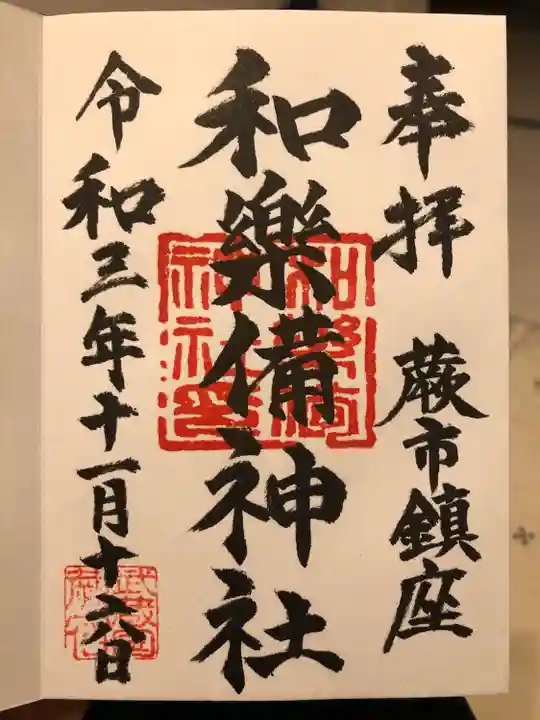 奉拝 蕨市鎮座
和樂備神社
令和三年十一月十六日